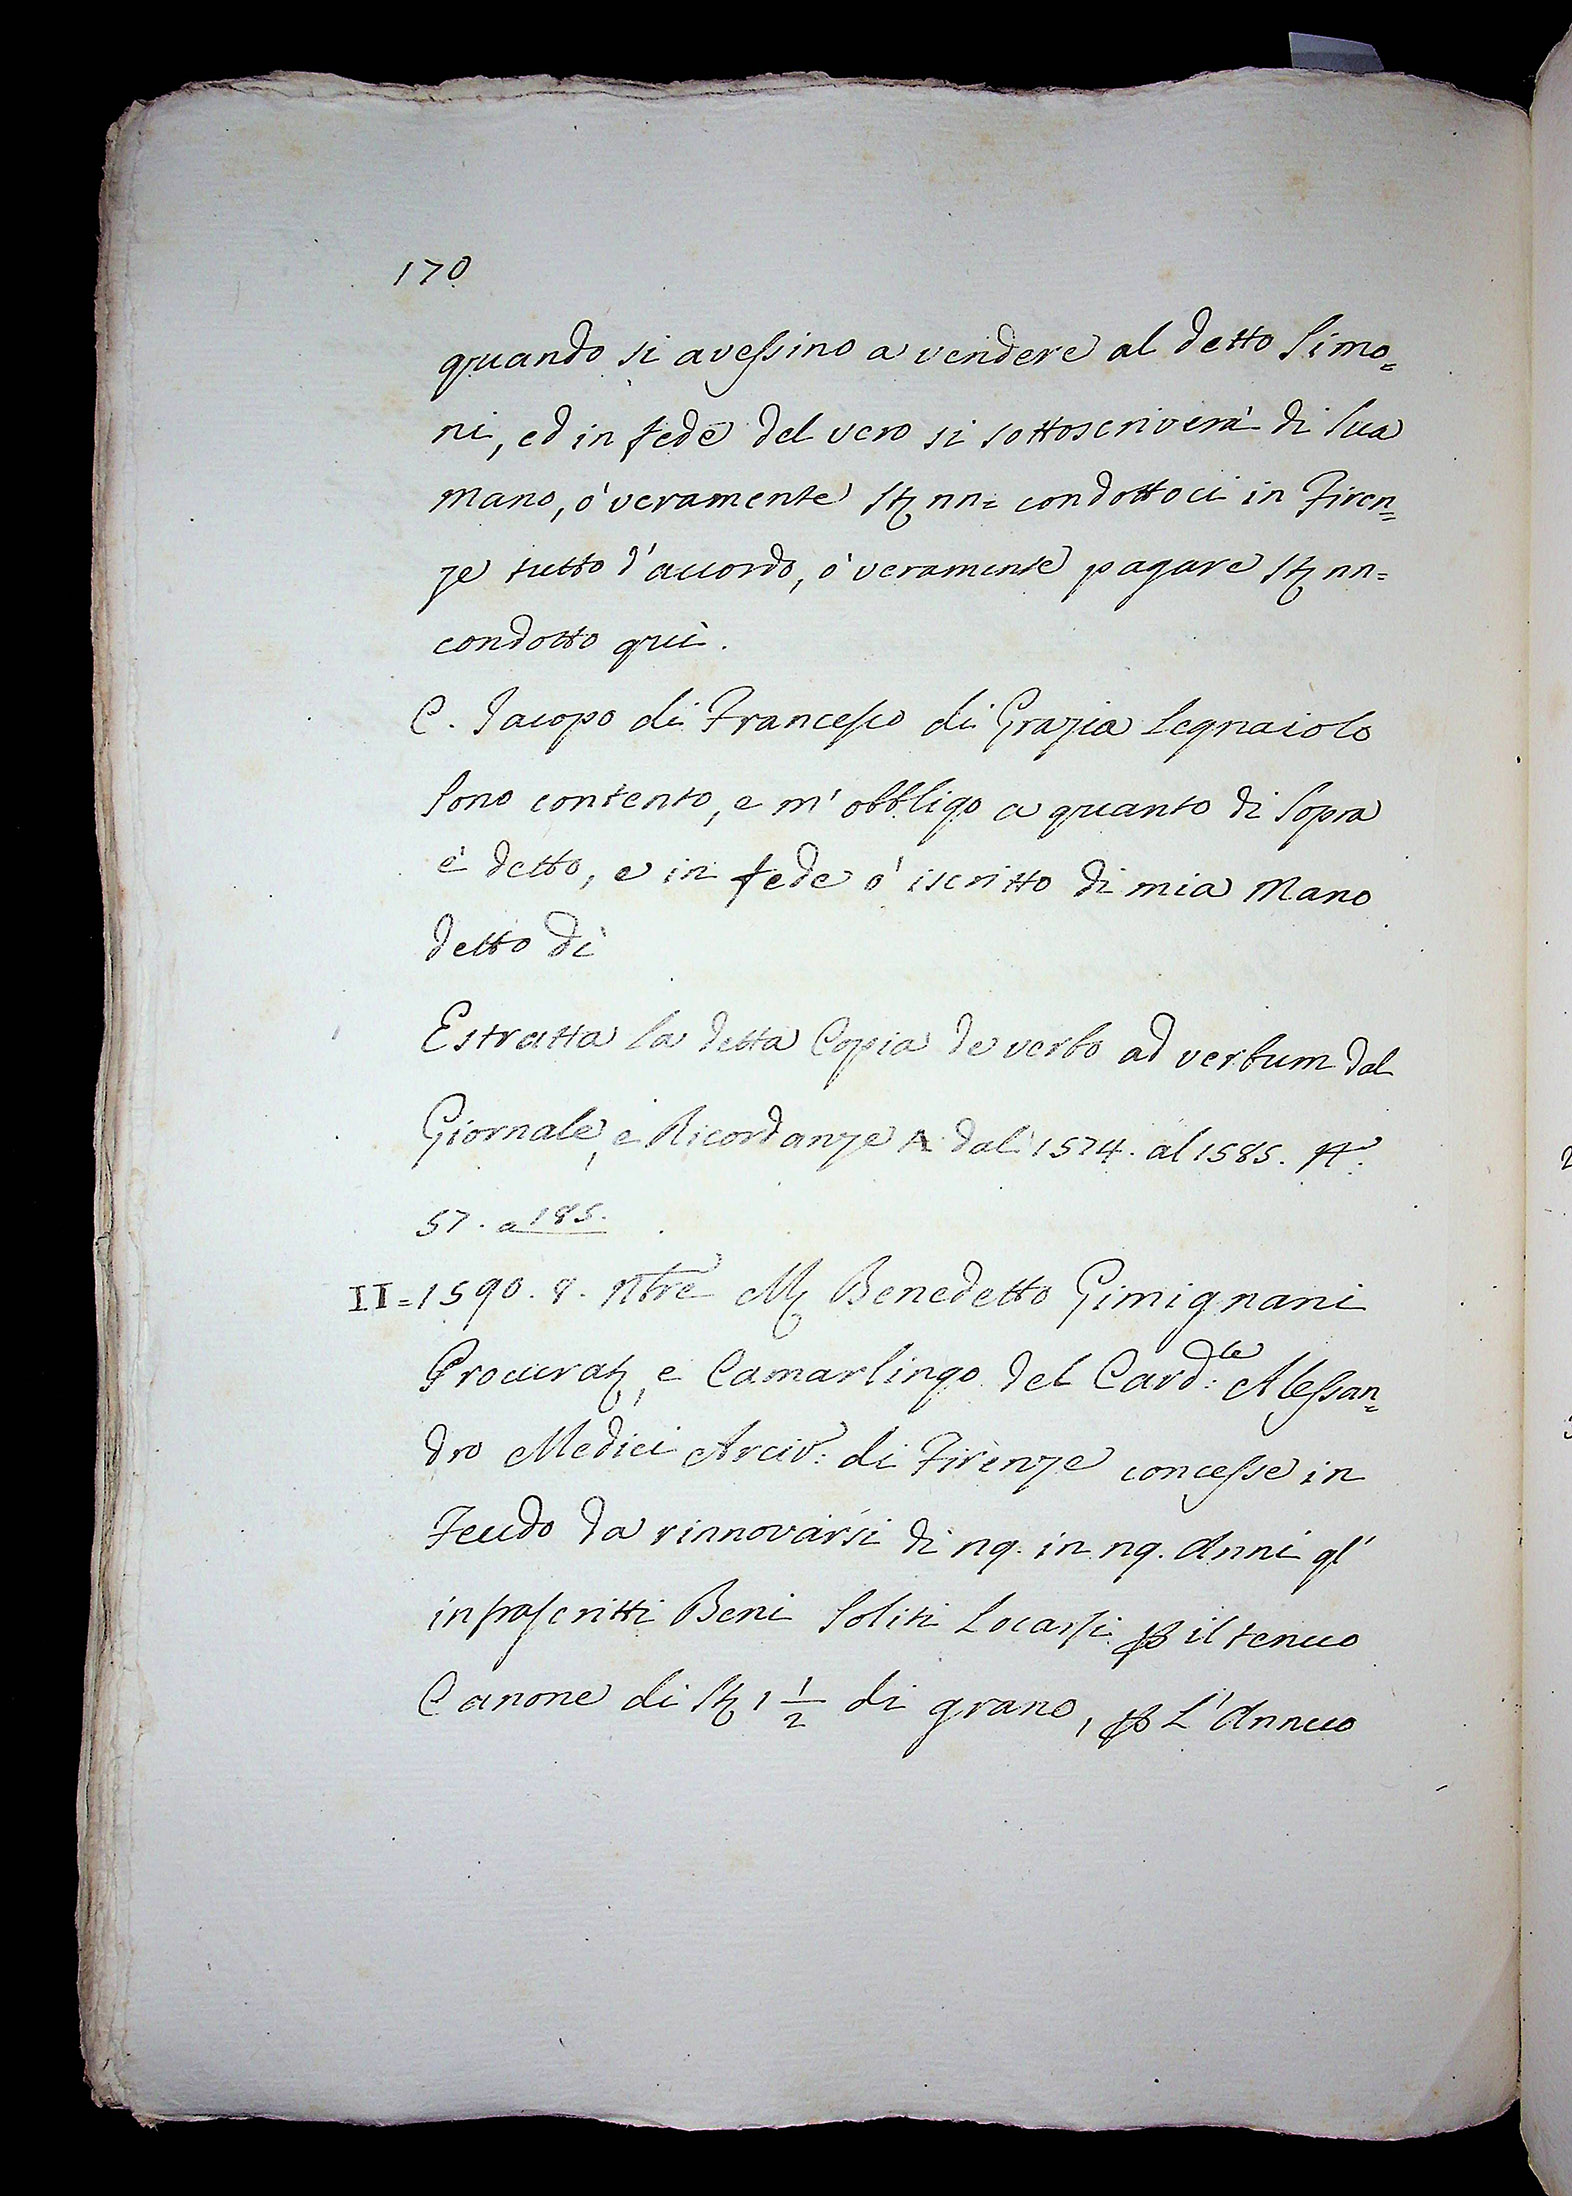 170
quando si avessino a vendere al detto Simo=
ni, ed in fede del vero si sottoscriverà di sua
mano, ò veramente nn= condottoci in Firen=
ze tutto d'accordo, ò veramente pagare nn=
condotto quì.
C. Jacopo di Francesco di Grazia Legnaiolo
sono contento, e m'obbligo a quanto di sopra
è detto, e in fede ò iscritto di mia mano
detto dì
Estratta la detta Copia de verbo ad verbum dal
Giornale, e Ricordanze A dal 1574. al 1585. N.o
57. a 185.
II=1590. 8. Nbre Benedetto Gimignani
e Camarlingo del Card:le Alessan=
dro Medici Arciv: di Firenze concesse in
Feudo da rinnovarsi di nq. in nq. Anni gl'
infrascritti Beni soliti Locarsi il tenuo
Canone di 1 1/2 di grano, L'Annuo